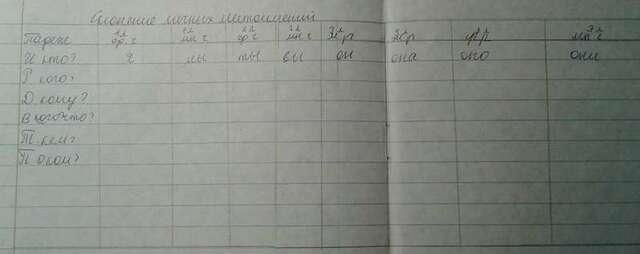 Склонение личных местоимений
Падеж 1л ед.ч 1л мн.ч 2л ед.ч 2л мн.ч 3л м р ж р ср р 3л мн ч
И кто? я мы ты вы он она оно они
Р кого?
Д. кому?
В кого?что?
Т. кем?
П о ком?